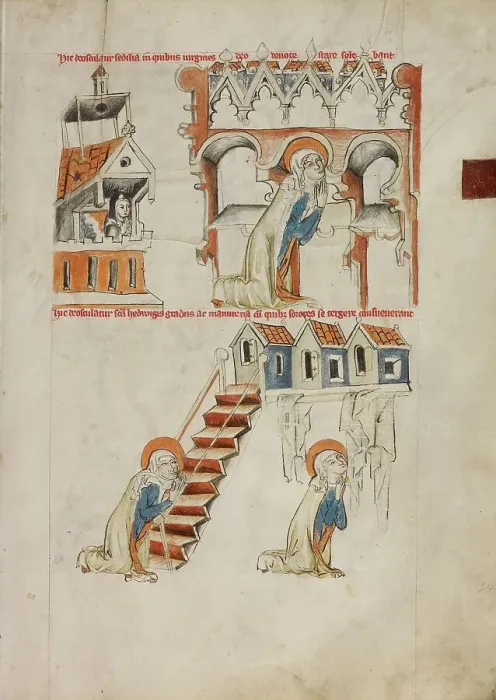 Hic deosculatur sedilia in quibus virgines deo devote stare sole bant
Hic deosculatur san hedwigis gradus ac manuteria cum quibus sorores se tergere consueuerant